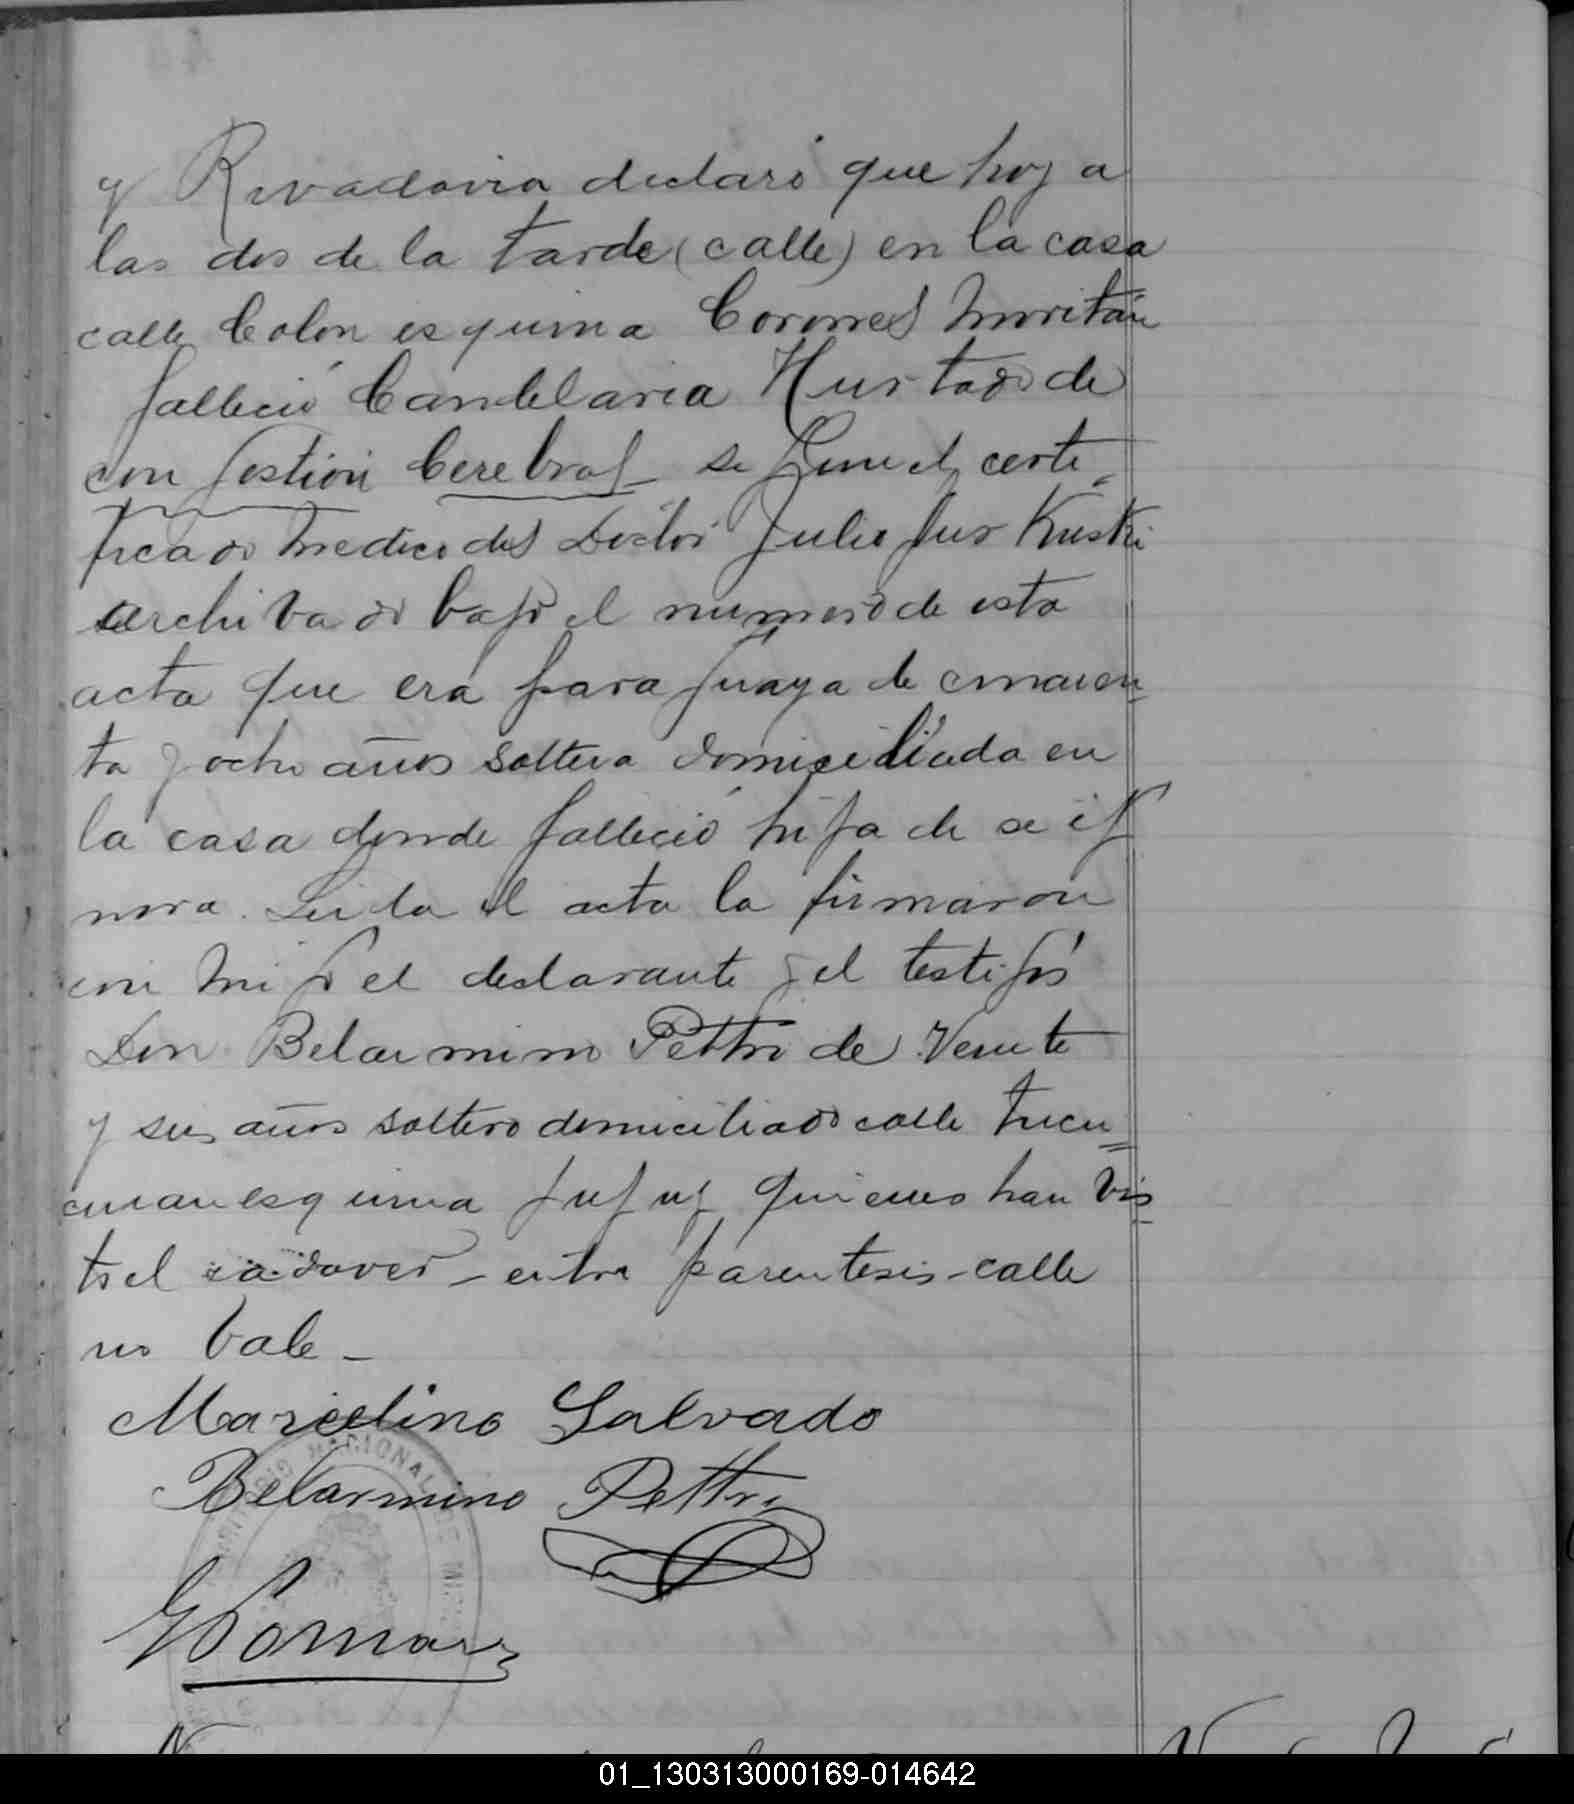 y Rivadavia declaró que hoy a
las dos de la tarde (calle) en la casa
calle Colon esquina Coronel Moritán
falleció Candelaria Hurtado de
congestión Cerebral segun el certi-
ficado medico del Doctor Julio
archivado bajo el numero de esta
acta que era paraguaya de cuaren-
ta y ocho años soltera domiciliada en
la casa donde falleció hija de se ig
nora. Leida el acta la firmaron
con migo el declarante y el testigo
Don Belarmino Pettri de Veinte
y seis años soltero domiciliado calle Tucu=
man esquina Jujuy quienes han vis
to el cadaver - entre parentesis - calle
no vale -
Marcelino Salvado
Belarmino Pettri
NACIONAL DE
01_130313000169-014642